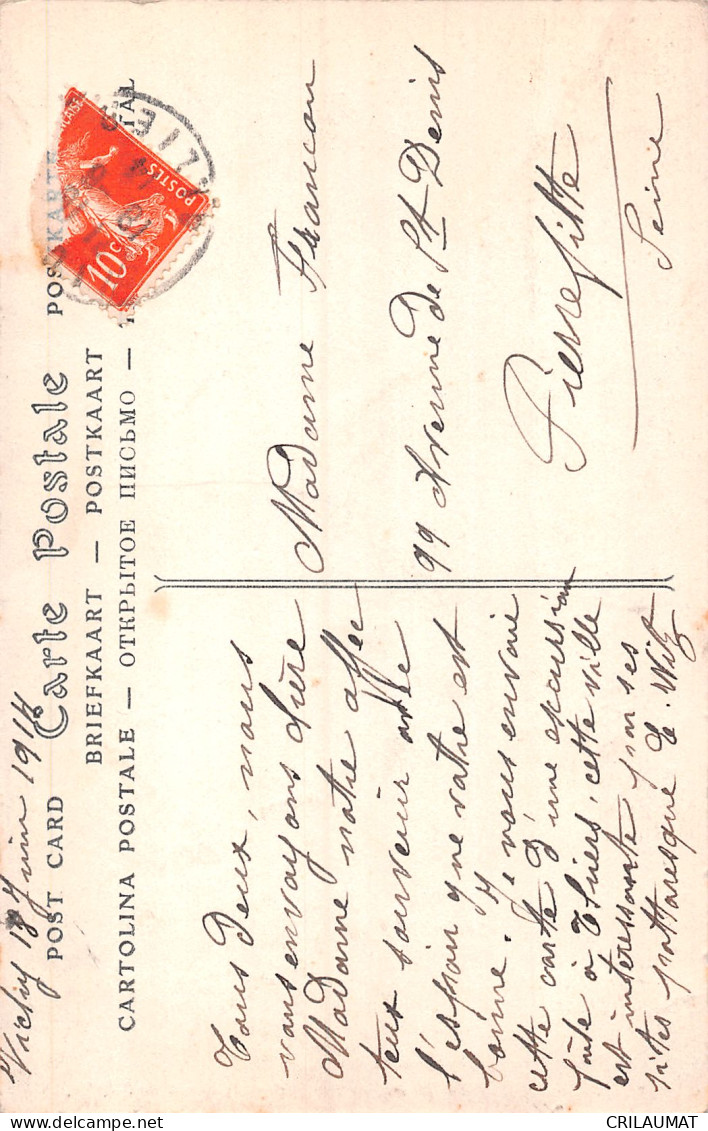 Vichy 18 Juin 1914
POST CARD Carte Postale POSTKARTE
BRIEFKAART — POSTKAART
CARTOLINA POSTALE — ОТКРЫТОЕ ПИСЬМО —
POSTES
10c
Tous deux, nous
vous envoyons chère
Madame notre affec
teux souvenir avec
l'espoir que votre est
bonne. Je vous envoie
cette carte d'une excursion
faite à Thiers, cette ville
est intéressante par ses
sites pittoresque L. Witz
Madame Francon
99 Avenue de St Denis
Pierrefitte
Seine
CRILAUMAT